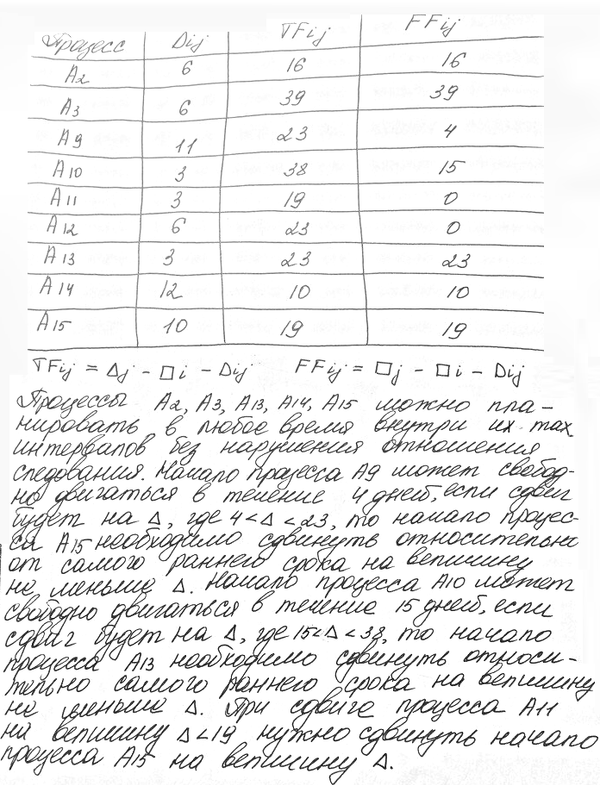 Процесс Dij TFij FFij
A2 6 16 16
A3 6 39 39
A9 11 23 4
A10 3 38 15
A11 3 19 0
A12 6 23 0
A13 3 23 23
A14 12 10 10
A15 10 19 19
TFij = Δj - □i - Dij FFij = □j - □i - Dij
Процессы A2, A3, A13, A14, A15 можно пла-
нировать в любое время внутри их max
интервалов без нарушения отношения
следования. Начало процесса A9 может свобод-
но двигаться в течение 4 дней, если сдвиг
будет на Δ, где 4<Δ<23, то начало процес-
са A15 необходимо сдвинуть относительно
от самого раннего срока на величину
не меньше Δ. Начало процесса A10 может
свободно двигаться в течение 15 дней, если
сдвиг будет на Δ, где 15<Δ<38, то начало
процесса A13 необходимо сдвинуть относи-
тельно самого раннего срока на величину
не меньше Δ. При сдвиге процесса A11
на величину Δ<19 нужно сдвинуть начало
процесса A15 на величину Δ.